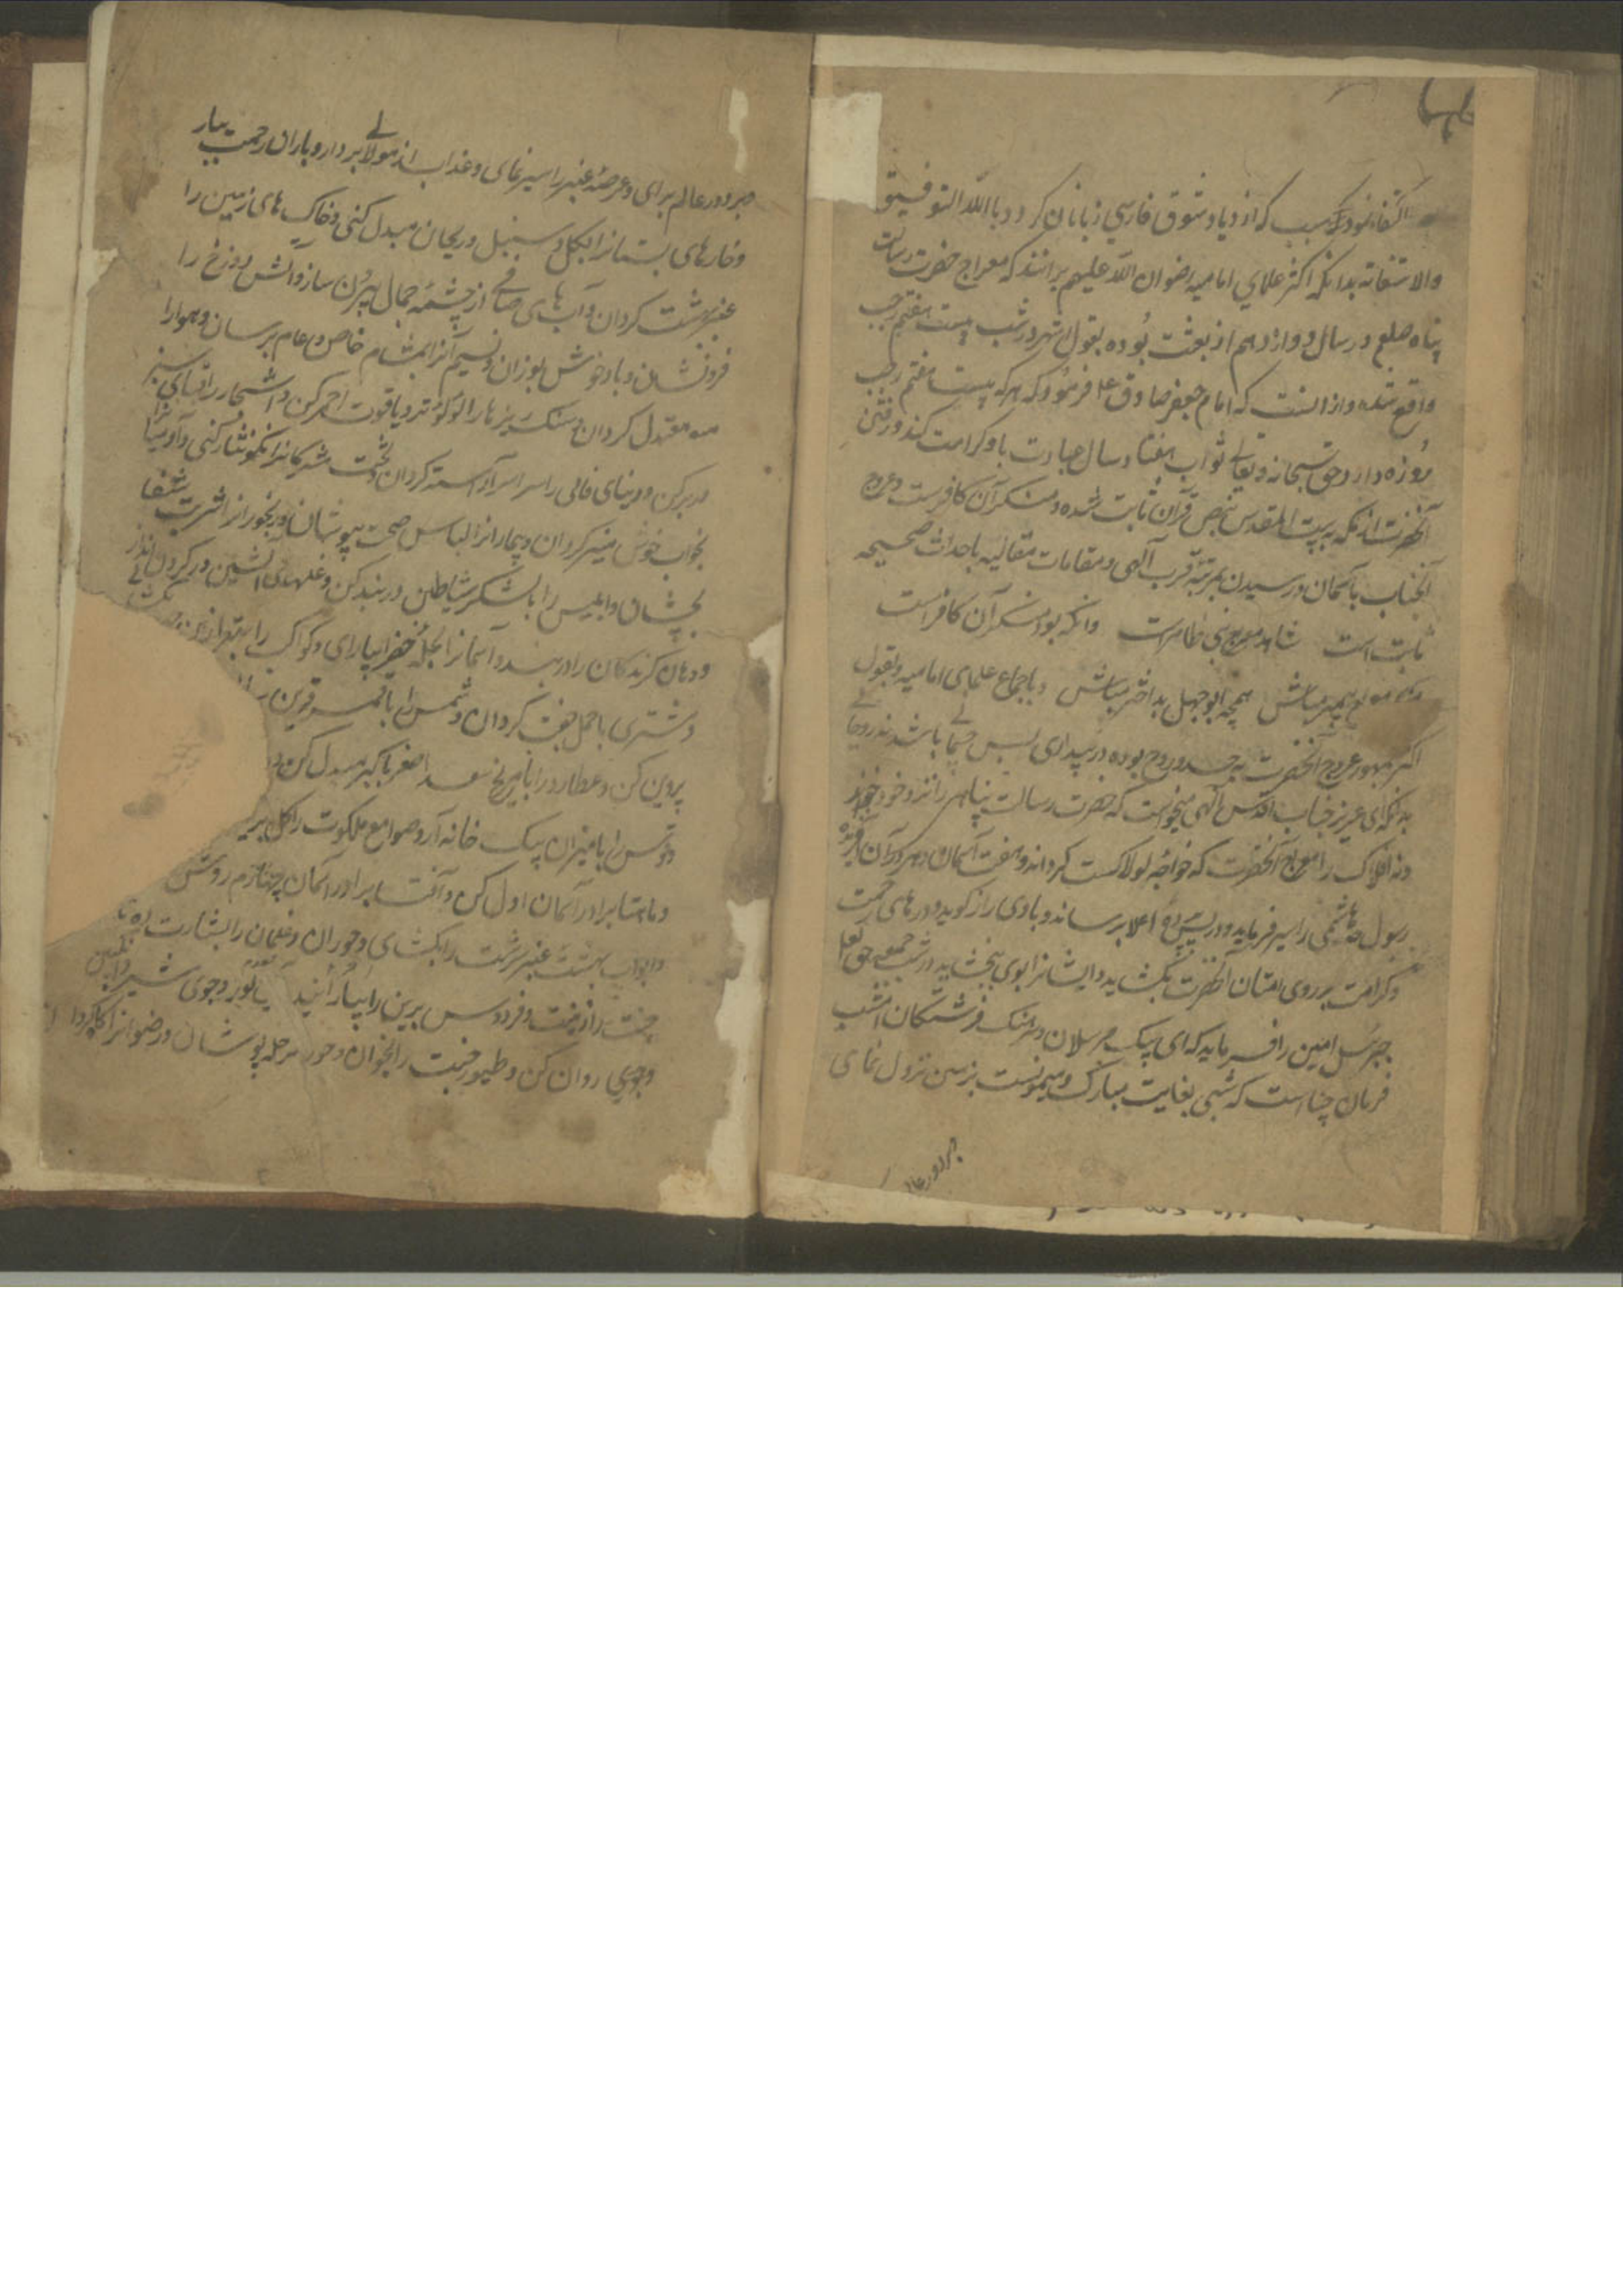 اکتفا نمود تا سبب که ازدیاد شوق فارسی زبانان کردد و باالله التوفیق
والاستعانه بدانکه اکثر علمای امامیه رضوان الله علیهم برانند که معراج حضرت رسالت
پناه صلعم در سال دوازدهم از بعثت بوده بقول اشهر در شب بیست هفتم رجب
واقع شده و از انست که امام جعفر صادق ع فرمود که هر که بیست هفتم رجب
روزه دارد حق سبحانه و تعالی ثواب هفتاد سال عبادت باو کرامت کند و رفتن
آنحضرت از مکه به بیت المقدس بنص قرآن ثابت شده و منکر آن کافرست و عروج
آنجناب باسمان و رسیدن بمرتبه قرب آلهی و مقامات متعالیه باحداث صحیحه
ثابت است شاهد معراج نبی ظاهرست وانکه بود منکر آن کافرست
منکر معراج پیمبر مباش همچو ابوجهل بداختر مباش و باجماع علمای امامیه و بقول
اکثر جمهور عروج آنحضرت بجسد و روح بوده در بیداری پس جسمانی باشد نه روحانی
بدانکه ای عزیز جناب اقدس آلهی میخواست که حضرت رسالت پناهی را نزد خود خواند
و نه افلاک را معراج آنحضرت که خواجه لولاکست کرداند و هفت آسمان و هر دران آفریده
رسول هاشمی را سیر فرماید و اعلا برساند و باوی راز کوید و درهای رحمت
و کرامت بر روی امتان آنحضرت بکشاید و ایشانرا بوی بخشاید در شب جمعه حق تعالی
جبرئیل امین را فرماید که ای پیک مرسلان و سرهنک فرشتکان امشب
فرمان چنانست که شبی بغایت مبارک و میمونست بزمین نزول نمای
بر دور عالم
بر دور عالم برای و عرصه غبرا سیر نمای و عذاب از بردار و باران رحمت ببار
و خارهای بستانرا بکل و سنبل و ریحان مبدل کنی و خاک های زمین را
عنبر بهشت کردان و آب های صافی از چشمه جمال بیرون ساز و آتش دوزخ را
فرونشان و باد خوش بوزان و نسیم آنرا بمشام خاص و عام برسان و هوا را
معتدل کردان و سنک ریزها را لولوء تر و یاقوت احمر کن و اشجار را قبای سبز
در بر کن و دنیای فانی را سراسر آراسته کردان و تخت مشرکانرا نکونسار کنی
بخواب خوش کردان و بیمارانرا لباس صحت بپوشان و رنجورانرا شربت شفا
بچشان و ابلیس را با لشکر شیاطین در بند کن و غلهای آتشین در کردن
و دهان کزندکان را در بند و آسمانرا بحله خضرا بیارای و کواکب را
و مشتری با حمل جفت کردان و شمس را با قمر قرین
پروین کن و عطارد را با مریخ سعد اصغر باکبر مبدل کن
و قوس را با میزان یک خانه آر و صوامع ملکوت را
و ماهتاب را در آسمان اول کن و آفتاب را در آسمان چهارم روشن
و ابواب بهشت عنبر سرشت را بکشای و حوران و غلمان را بشارت ده
جنت را زینت و فردوس برین را بیارائید و جوی شیر
و جوی روان کن و طیور جنت را بخوان و حور هر حله پوشان و رضوانرا